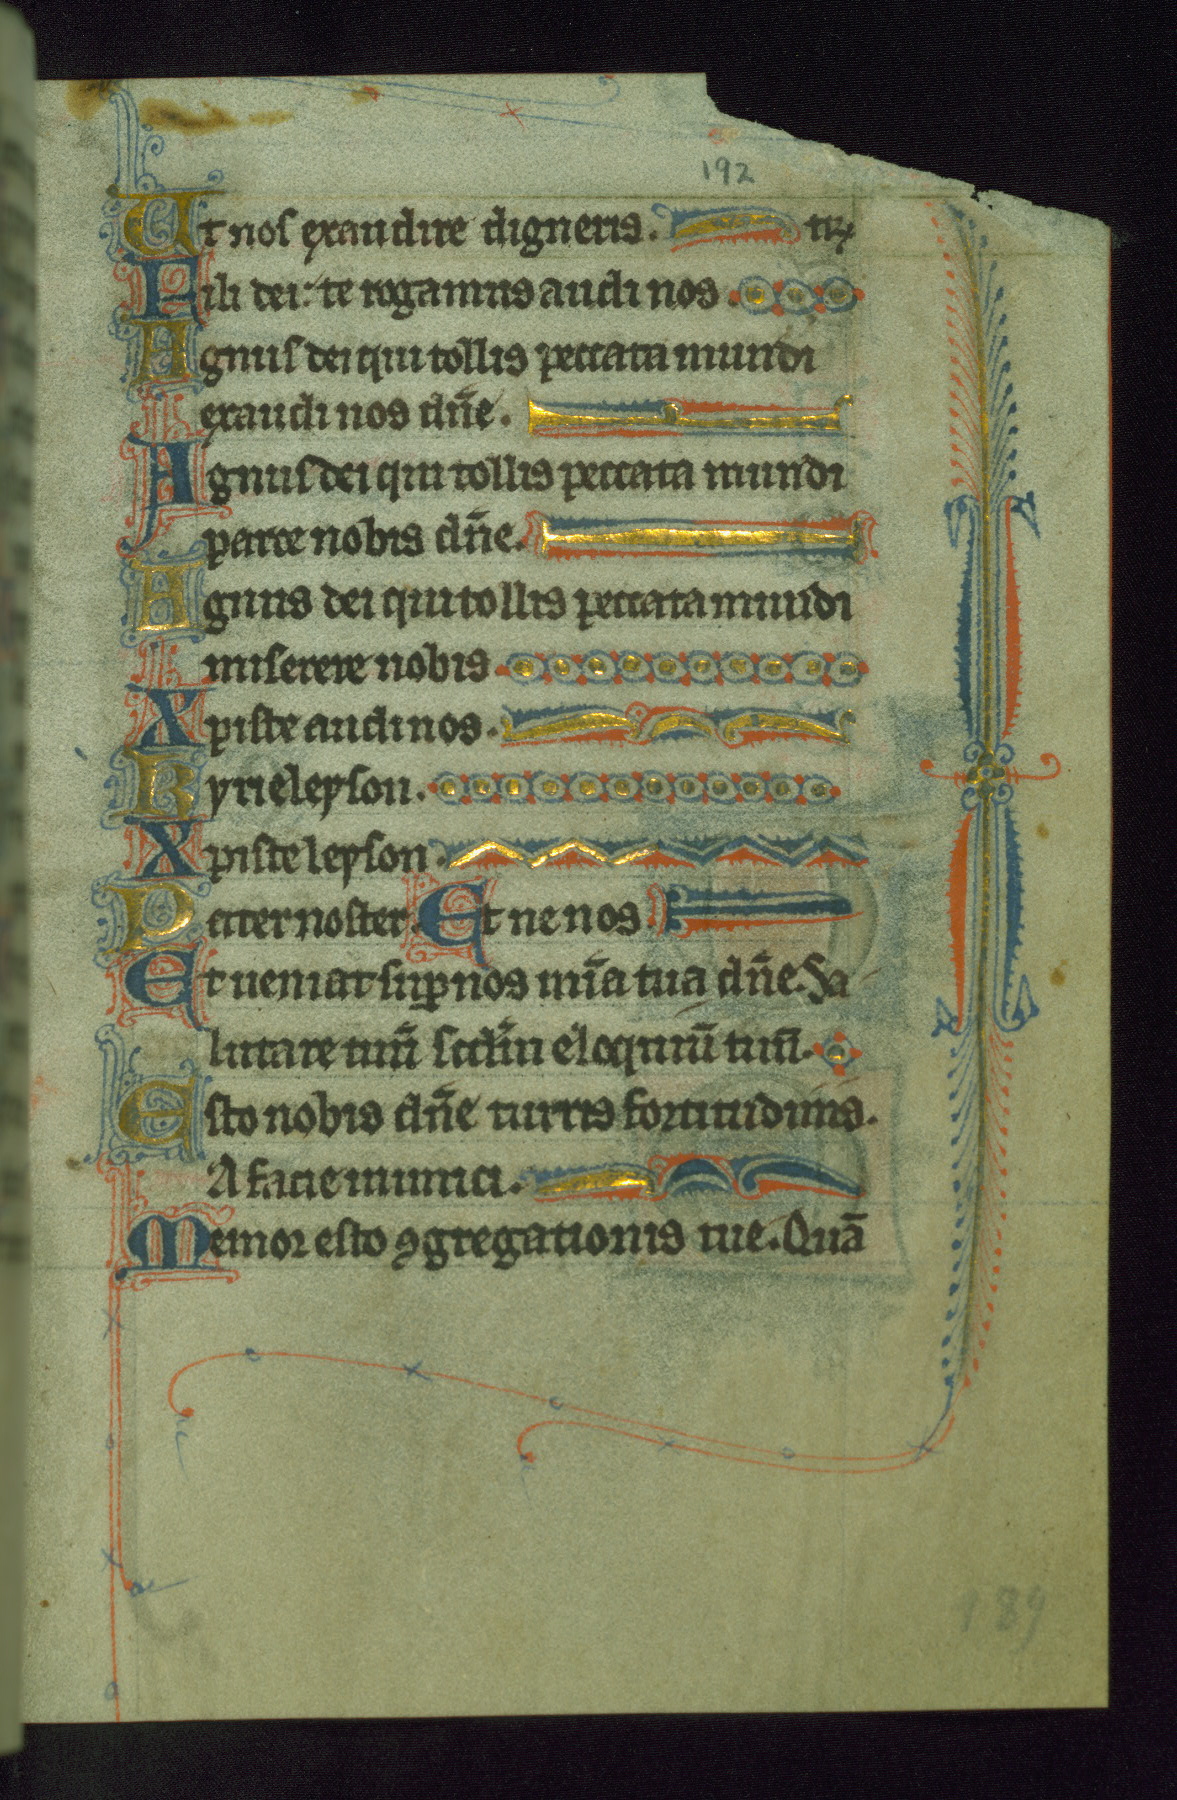 192
Ut nos exaudire digneris. tr̃
Fili dei: te rogamus audi nos.
Agnus dei qui tollis peccata mundi
exaudi nos dñe.
Agnus dei qui tollis peccata mundi
parce nobis dñe.
Agnus dei qui tollis peccata mundi
miserere nobis.
Xpiste audi nos.
Kyrieleyson.
Xpisteleyson.
Pater noster. Et ne nos
Et ueniat suꝑ nos mĩa tua dñe. Sa
lutare tuũ scdm̃ eloquiũ tuũ.
Esto nobis dñe turris fortitudinis.
A facie inimici.
Memor esto ꝯgregationis tue. Quã
189